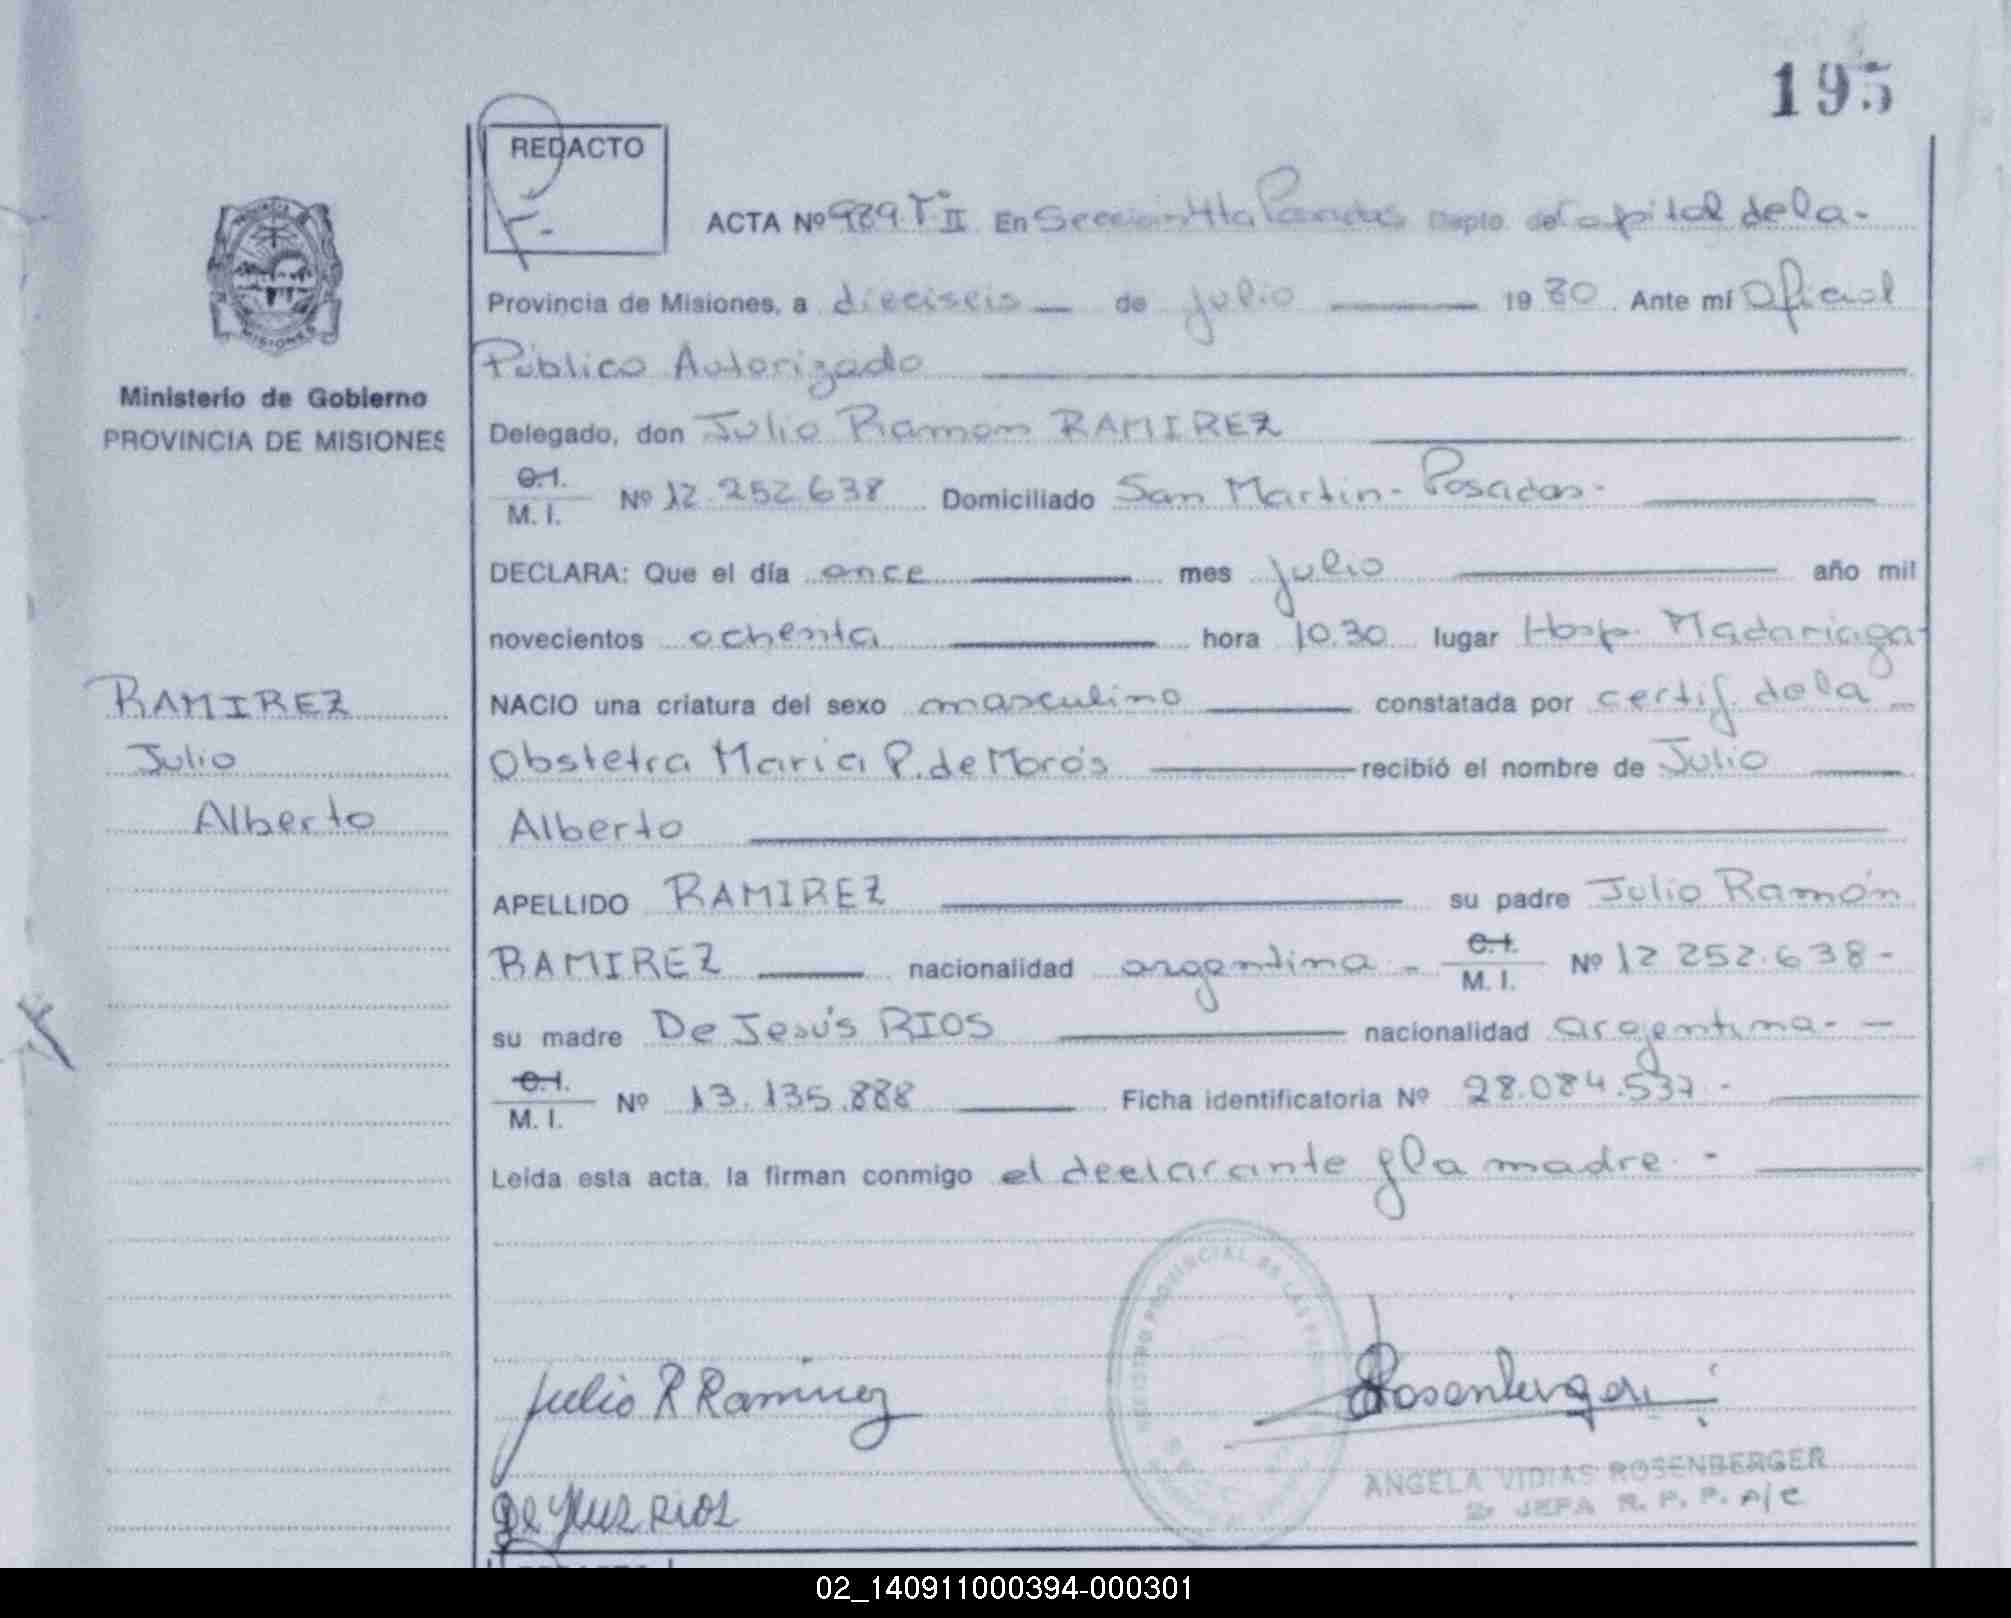 195
REDACTO
ACTA Nº 989 Tº II En Sección 4ta Posadas Depto. de Capital de la -
Provincia de Misiones, a dieciseis de julio 1980. Ante mí Oficial
Público Autorizado
Delegado, don Julio Ramón RAMIREZ
C.I.
M. I. Nº 12.252.638 Domiciliado San Martin - Posadas -
DECLARA: Que el día once mes julio año mil
novecientos ochenta hora 10.30 lugar Hosp. Madariaga -
NACIO una criatura del sexo masculino constatada por certif. de la -
Obstetra Maria P. de Morós recibió el nombre de Julio
Alberto
APELLIDO RAMIREZ su padre Julio Ramón
RAMIREZ nacionalidad argentina - C.I.
M. I. Nº 12 252.638 -
su madre De Jesús RIOS nacionalidad argentina - -
C.I.
M. I. Nº 13.135.888 Ficha identificatoria Nº 28.084.537 -
Leída esta acta, la firman conmigo el declarante y la madre. -
Ministerio de Gobierno
PROVINCIA DE MISIONES
RAMIREZ
Julio
Alberto
REGISTRO PROVINCIAL DE LAS
Julio R Ramirez
Rosenberger
ANGELA VIDIAS ROSENBERGER
JEFA R. P. P. A/C
De Jesus RIOS
02_140911000394-000301